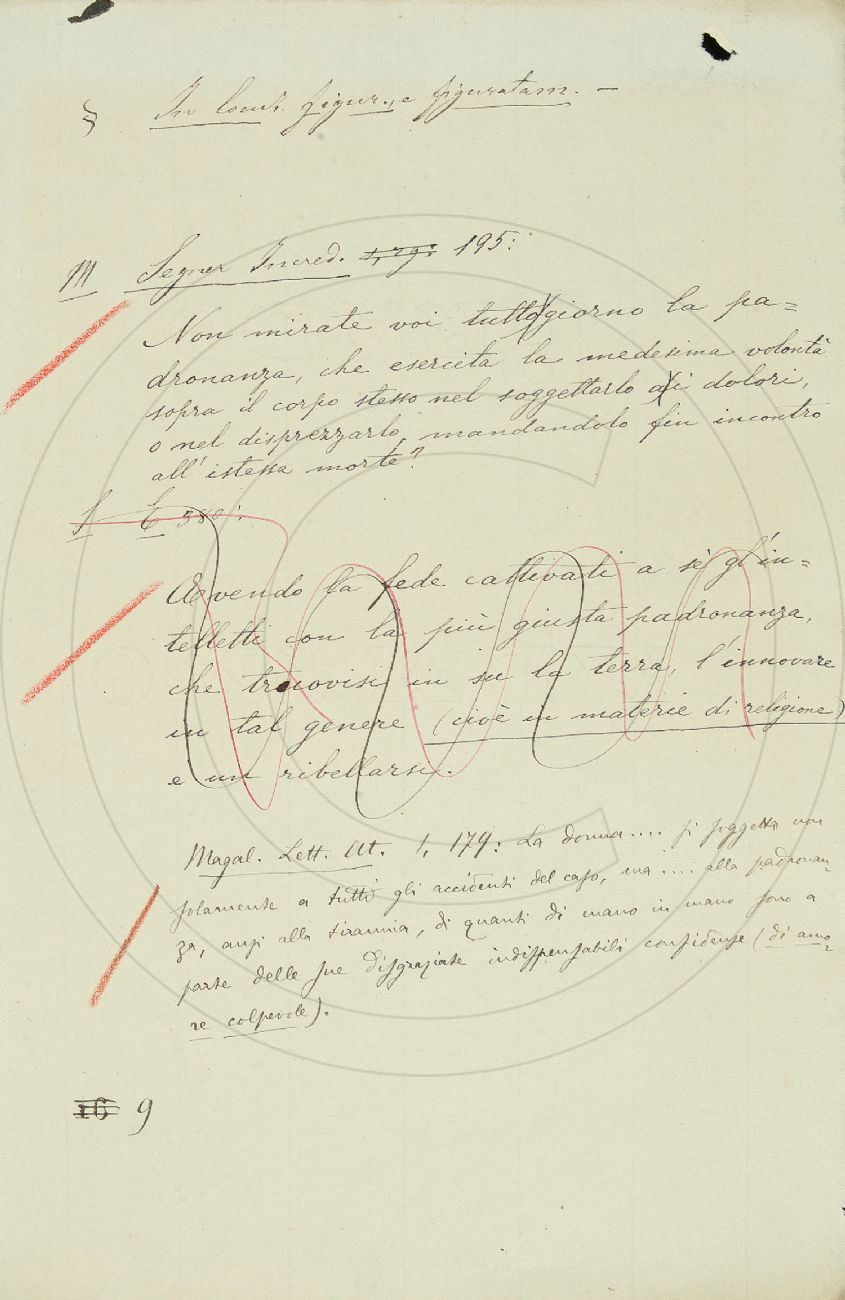 § In locuz. figur., e figuratam. –
M Segner Incred. 1, 29: 195:
Non mirate voi tutto giorno la pa=
dronanza, che esercita la medesima volontà
sopra il corpo stesso nel soggettarlo a i dolori,
o nel disprezzarlo, mandandolo fin incontro
all'istessa morte?
E 580:
Avendo la fede cattivati a sè gl'in=
telletti con la più giusta padronanza,
che truovisi in su la terra, l'innovare
in tal genere (cioè in materie di religione)
e un ribellarsi.
Magal. Lett. At. 1, 179: La donna.... si soggetta non
solamente a tutti gli accidenti del caso, ma.... alla padronan-
za, anzi alla tirannia, di quanti di mano in mano sono a
parte delle sue disgraziate indispensabili confidenze (di amo-
re colpevole).
16 9